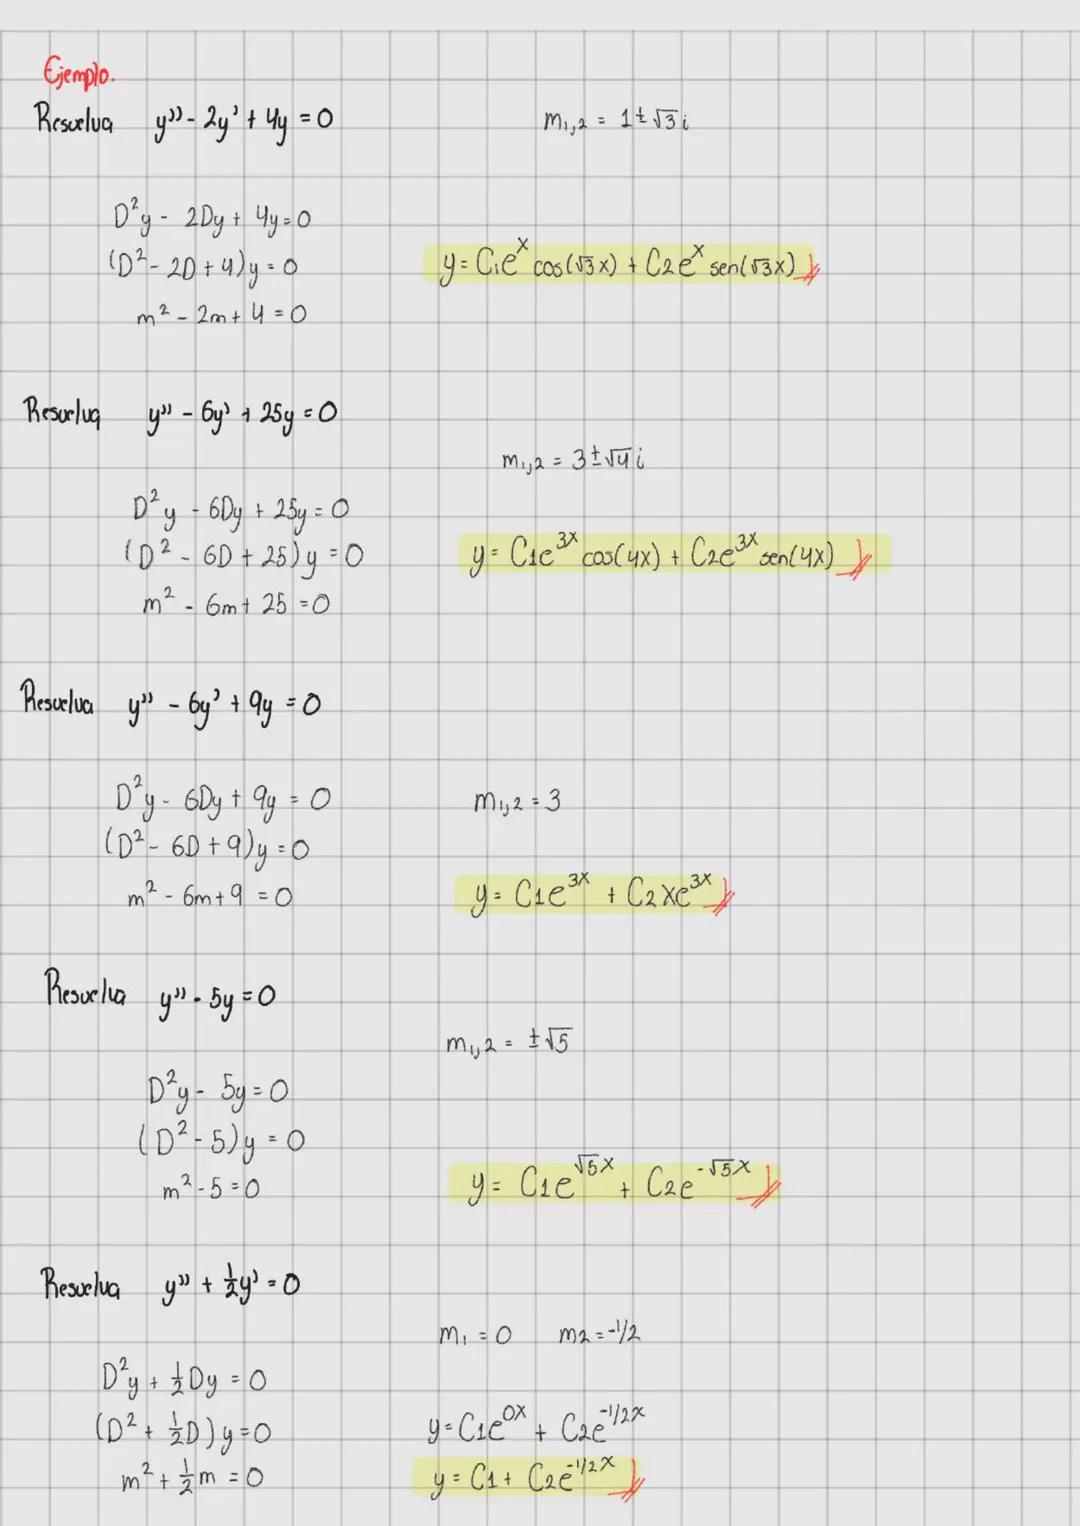 Ejemplo.
Resuelva y'' - 2y' + 4y = 0
m₁,₂ = 1 ± √3 i
D²y - 2Dy + 4y = 0
(D² - 2D + 4)y = 0
y = C₁eˣ cos(√3x) + C2eˣ sen(√3x)
m² - 2m + 4 = 0
Resuelva y'' - 6y' + 25y = 0
m₁,₂ = 3 ± √4 i
D²y - 6Dy + 25y = 0
(D² - 6D + 25)y = 0
y = C1e³ˣ cos(4x) + C2e³ˣ sen(4x)
m² - 6m + 25 = 0
Resuelva y'' - 6y' + 9y = 0
D²y - 6Dy + 9y = 0
m₁,₂ = 3
(D² - 6D + 9)y = 0
m² - 6m + 9 = 0
y = C1e³ˣ + C2xe³ˣ
Resuelva y'' - 5y = 0
m₁,₂ = ±√5
D²y - 5y = 0
(D² - 5)y = 0
m² - 5 = 0
y = C1e^√5x + C2e^-√5x
Resuelva y'' + ½y' = 0
m₁ = 0 m2 = -1/2
D²y + ½Dy = 0
(D² + ½D)y = 0
y = C1e^0x + C2e^-1/2x
m² + ½m = 0
y = C1 + C2e^-1/2x